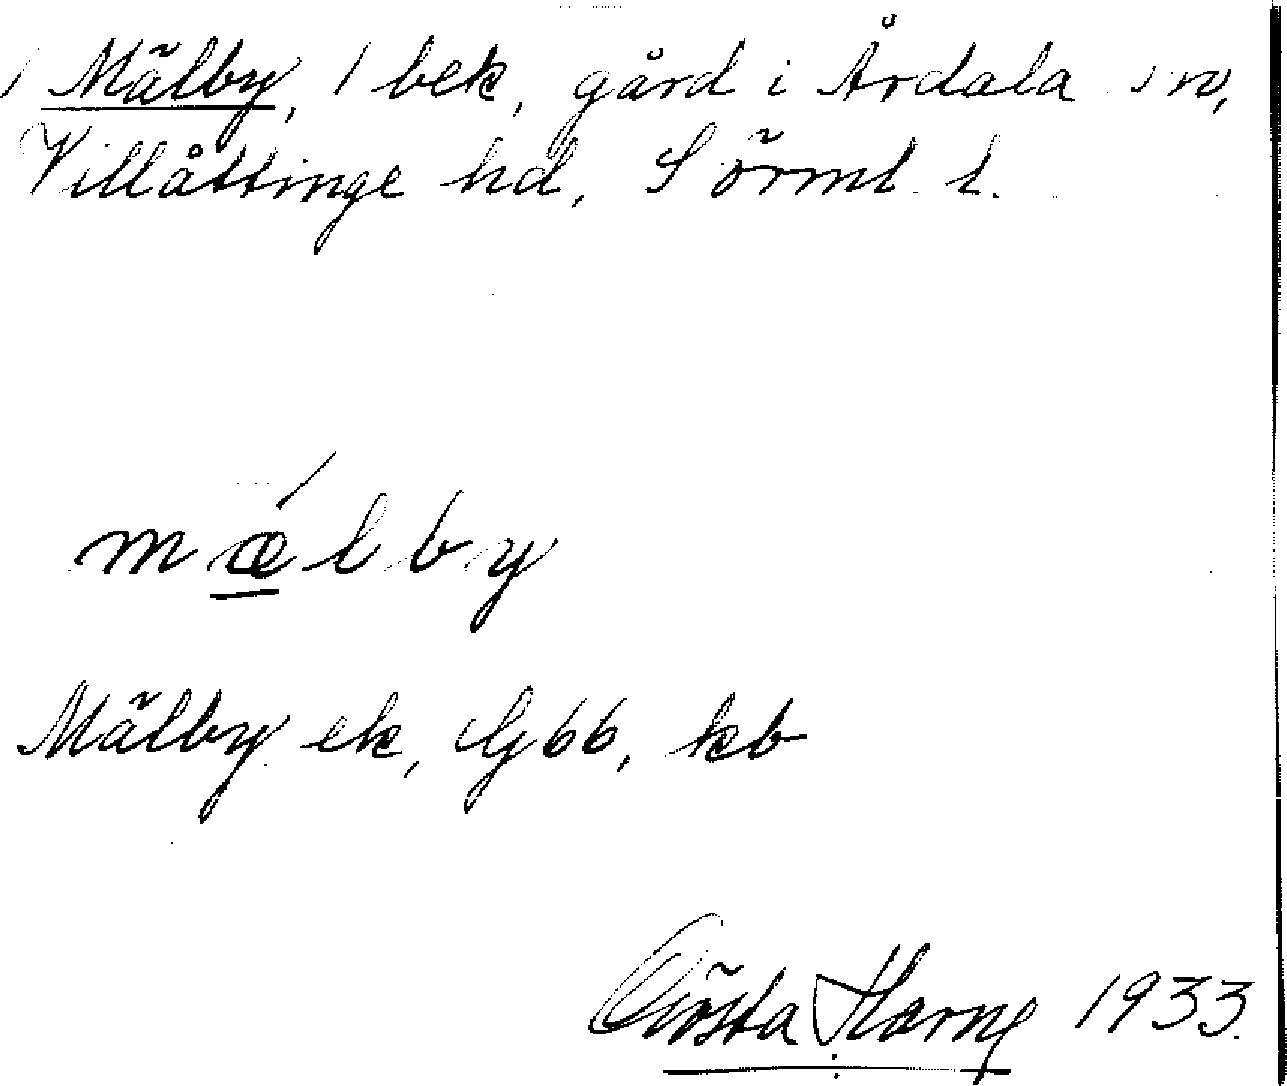 Mälby, 1 bek, gård i Årdala sn,
Villåttinge hd, Sörml. l.
mǽlby
Mälby ek, Gj 66, kb
Gösta 1933.